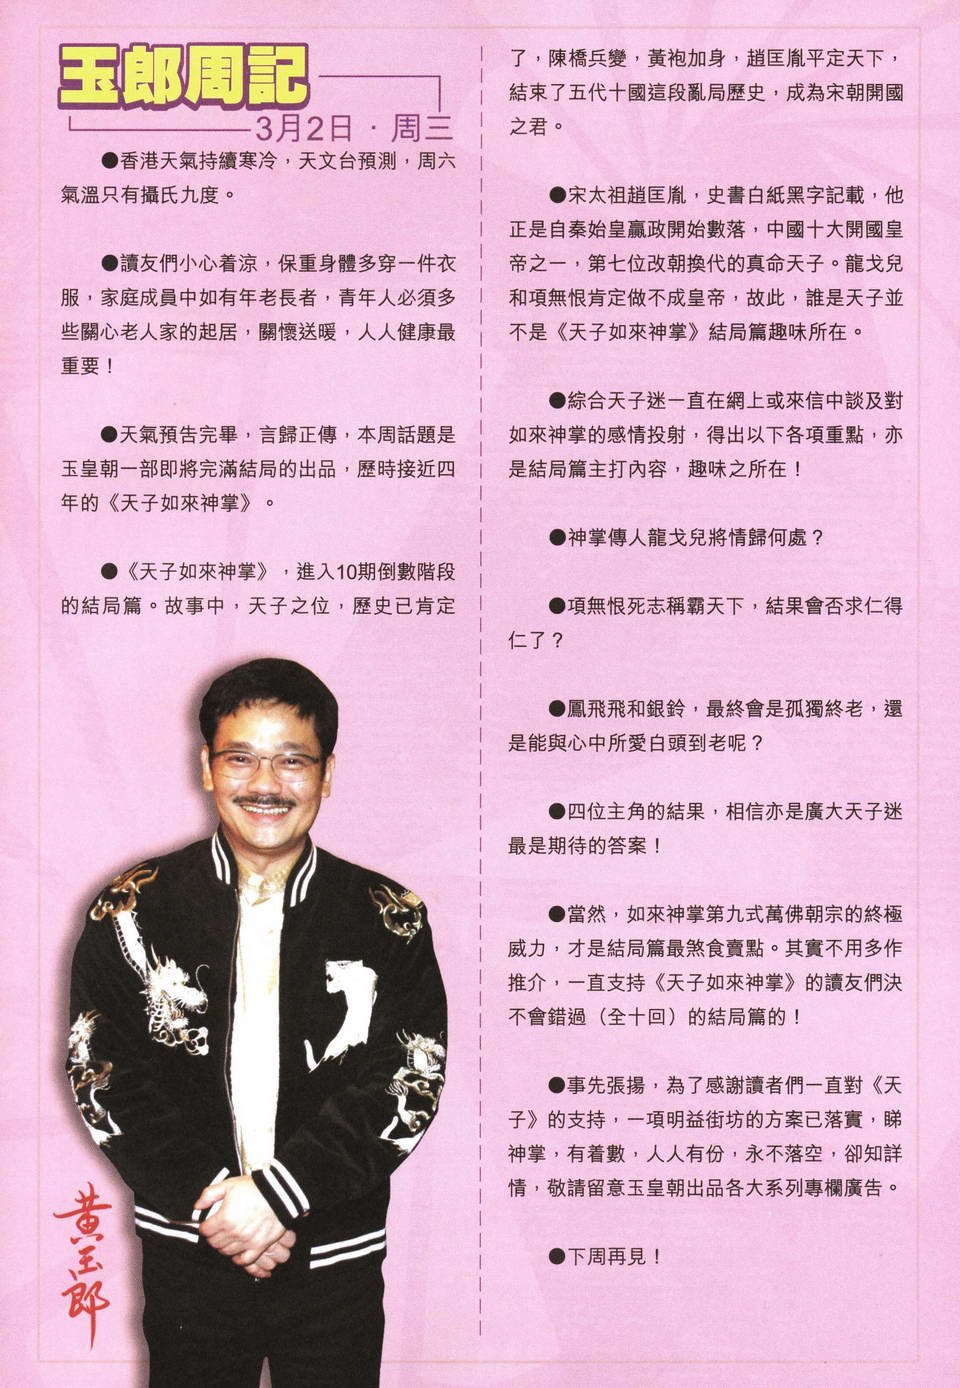 玉郎周記
3月2日．周三
●香港天氣持續寒冷，天文台預測，周六
氣溫只有攝氏九度。
●讀友們小心着涼，保重身體多穿一件衣
服，家庭成員中如有年老長者，青年人必須多
些關心老人家的起居，關懷送暖，人人健康最
重要！
●天氣預告完畢，言歸正傳，本周話題是
玉皇朝一部即將完滿結局的出品，歷時接近四
年的《天子如來神掌》。
●《天子如來神掌》，進入10期倒數階段
的結局篇。故事中，天子之位，歷史已肯定
了，陳橋兵變，黃袍加身，趙匡胤平定天下，
結束了五代十國這段亂局歷史，成為宋朝開國
之君。
●宋太祖趙匡胤，史書白紙黑字記載，他
正是自秦始皇贏政開始數落，中國十大開國皇
帝之一，第七位改朝換代的真命天子。龍戈兒
和項無恨肯定做不成皇帝，故此，誰是天子並
不是《天子如來神掌》結局篇趣味所在。
●綜合天子迷一直在網上或來信中談及對
如來神掌的感情投射，得出以下各項重點，亦
是結局篇主打內容，趣味之所在！
●神掌傳人龍戈兒將情歸何處？
●項無恨死志稱霸天下，結果會否求仁得
仁了？
●鳳飛飛和銀鈴，最終會是孤獨終老，還
是能與心中所愛白頭到老呢？
●四位主角的結果，相信亦是廣大天子迷
最是期待的答案！
●當然，如來神掌第九式萬佛朝宗的終極
威力，才是結局篇最煞食賣點。其實不用多作
推介，一直支持《天子如來神掌》的讀友們決
不會錯過（全十回）的結局篇的！
●事先張揚，為了感謝讀者們一直對《天
子》的支持，一項明益街坊的方案已落實，睇
神掌，有着數，人人有份，永不落空，卻知詳
情，敬請留意玉皇朝出品各大系列專欄廣告。
●下周再見！
黃玉郎